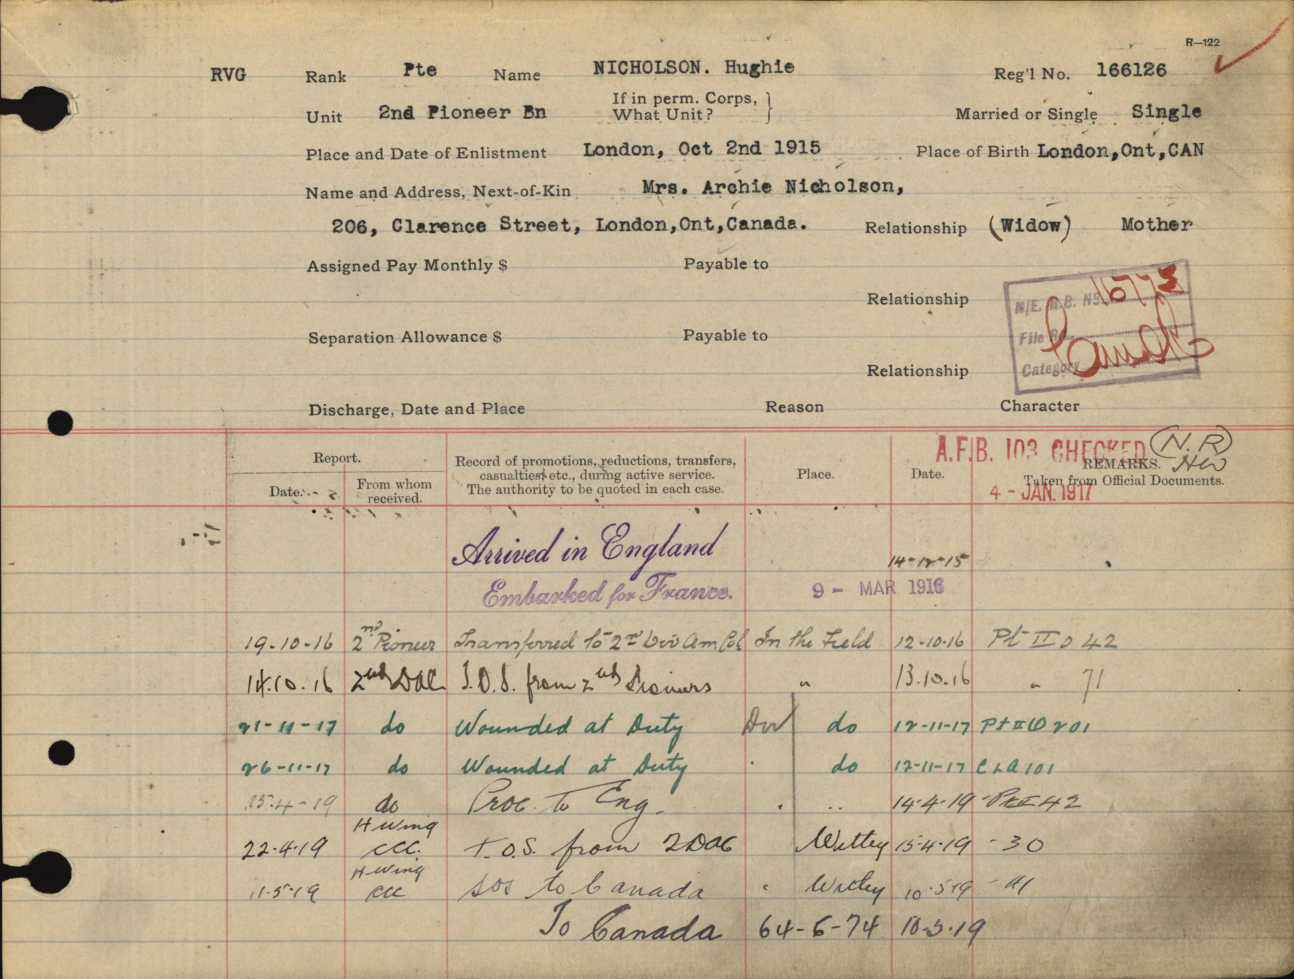 R—122
RVG Rank Pte Name NICHOLSON. Hughie Reg'l No. 166126
Unit 2nd Pioneer Bn If in perm. Corps, What Unit? Married or Single Single
Place and Date of Enlistment London, Oct 2nd 1915 Place of Birth London,Ont,CAN
Name and Address, Next-of-Kin Mrs. Archie Nicholson,
206, Clarence Street, London,Ont,Canada. Relationship (Widow) Mother
Assigned Pay Monthly $ Payable to
Relationship
N/E. R.B. No. 16773
File R
Category Canada
Separation Allowance $ Payable to
Relationship
Discharge, Date and Place Reason Character
A.F.B. 103 CHECKED
4 - JAN. 1917
N.R
Report.
Date. From whom received.
Record of promotions, reductions, transfers, casualties, etc., during active service. The authority to be quoted in each case.
Place. Date.
REMARKS.
Taken from Official Documents.
Arrived in England 14-12-15
Embarked for France. 9 - MAR 1916
19-10-16 2nd Pioneer Transferred to 2nd Div Am. Col In the Field 12-10-16 Pt II O 42
14.10.16 2nd DAC T.O.S. from 2nd Pioneers " 13.10.16 " 71
21-11-17 do Wounded at Duty do 12-11-17 Pt II O 201
26-11-17 do Wounded at Duty do 12-11-17 CLA 101
15-4-19 do Proc. To Eng. " 14-4-19 Pt II 42
22-4-19 H Wing CCC. T.O.S. from 2DAC Witley 15-4-19 - 30
11-5-19 H Wing CCC SOS to Canada " Witley 10-5-19
To Canada 64-6-74 10-5-19